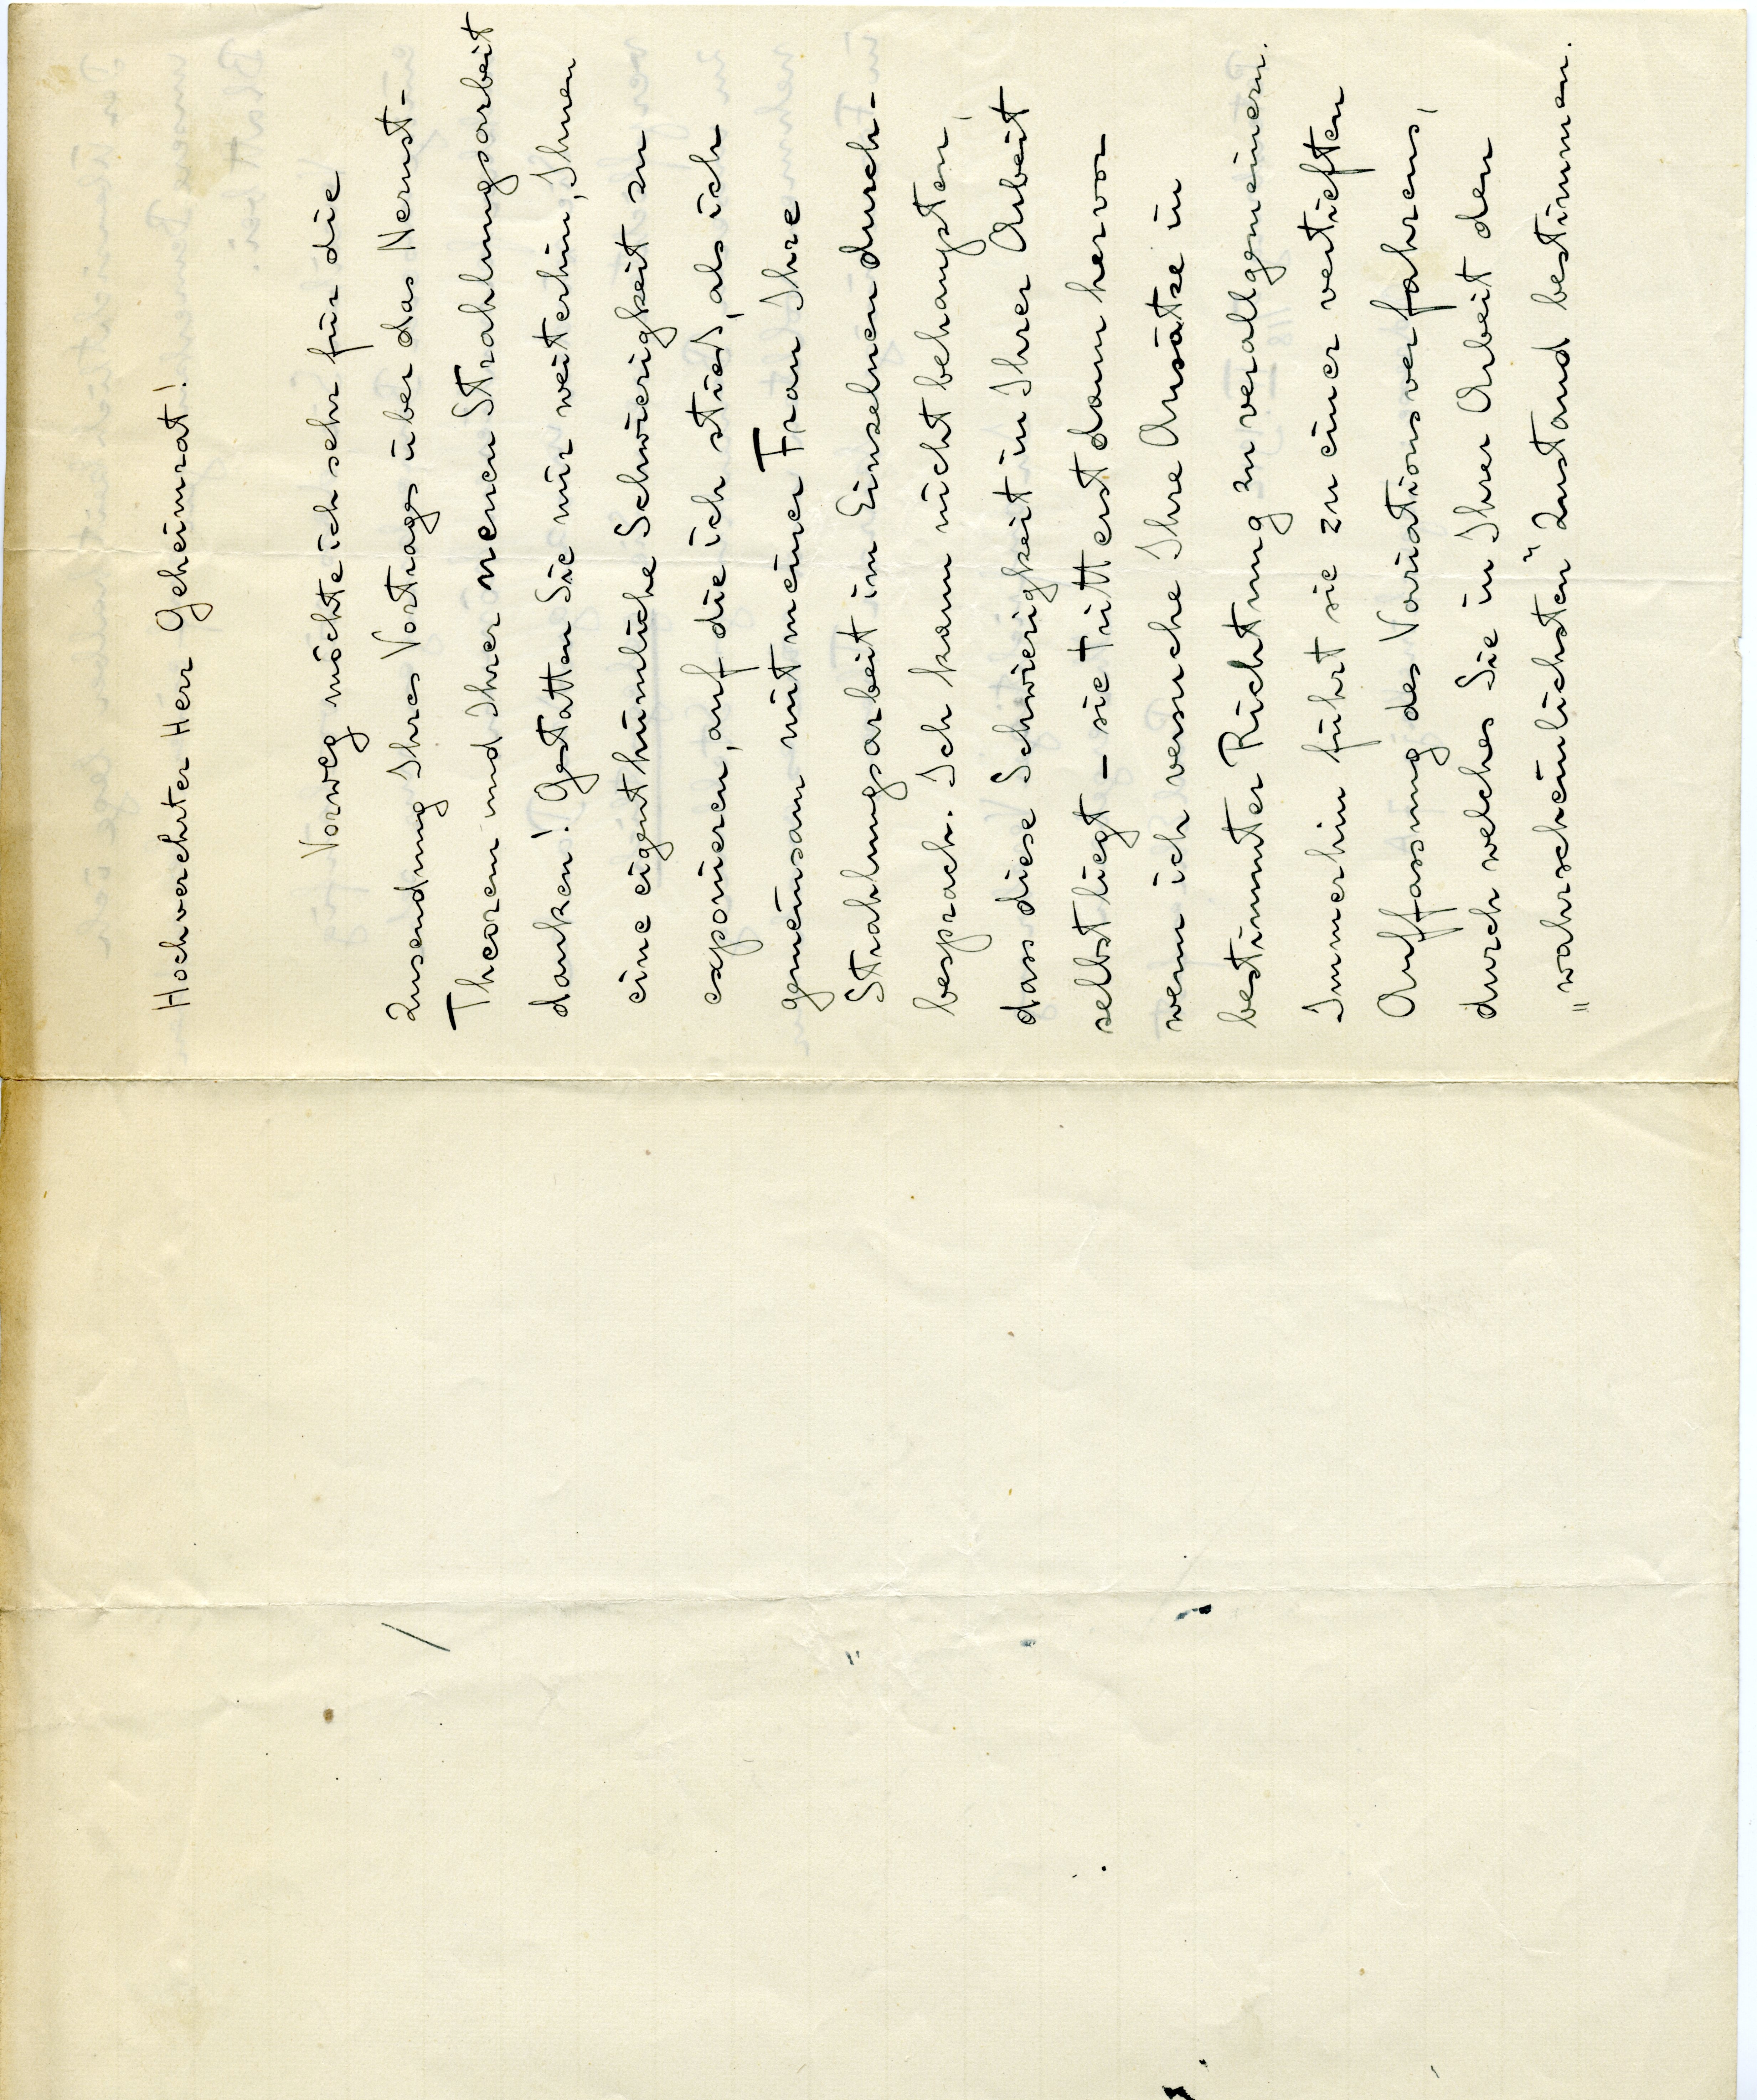 Hochverehrter Herr Geheimrat!
Vorweg möchte ich sehr für die
Zusendung Ihres Vortrages über das Nernst-
Theorem und Ihrer neuen Strahlungsarbeit
danken! Gestatten Sie mir weiterhin, Ihnen
eine eigenthümliche Schwierigkeit zu
exponieren, auf die ich stieß, als ich
gemeinsam mit meiner Frau Ihre
Strahlungsarbeit im Einzelnen durch-
besprach. Ich kann nicht behaupten,
dass diese Schwierigkeit in Ihrer Arbeit
selbst liegt – sie tritt erst dann hervor
wenn ich versuche Ihre Ansätze in
bestimmter Richtung zu verallgemeinern.
Immerhin führt sie zu einer vertieften
Auffassung des Variationsverfahrens,
durch welches Sie in Ihrer Arbeit den
„wahrscheinlichsten" Zustand bestimmen.